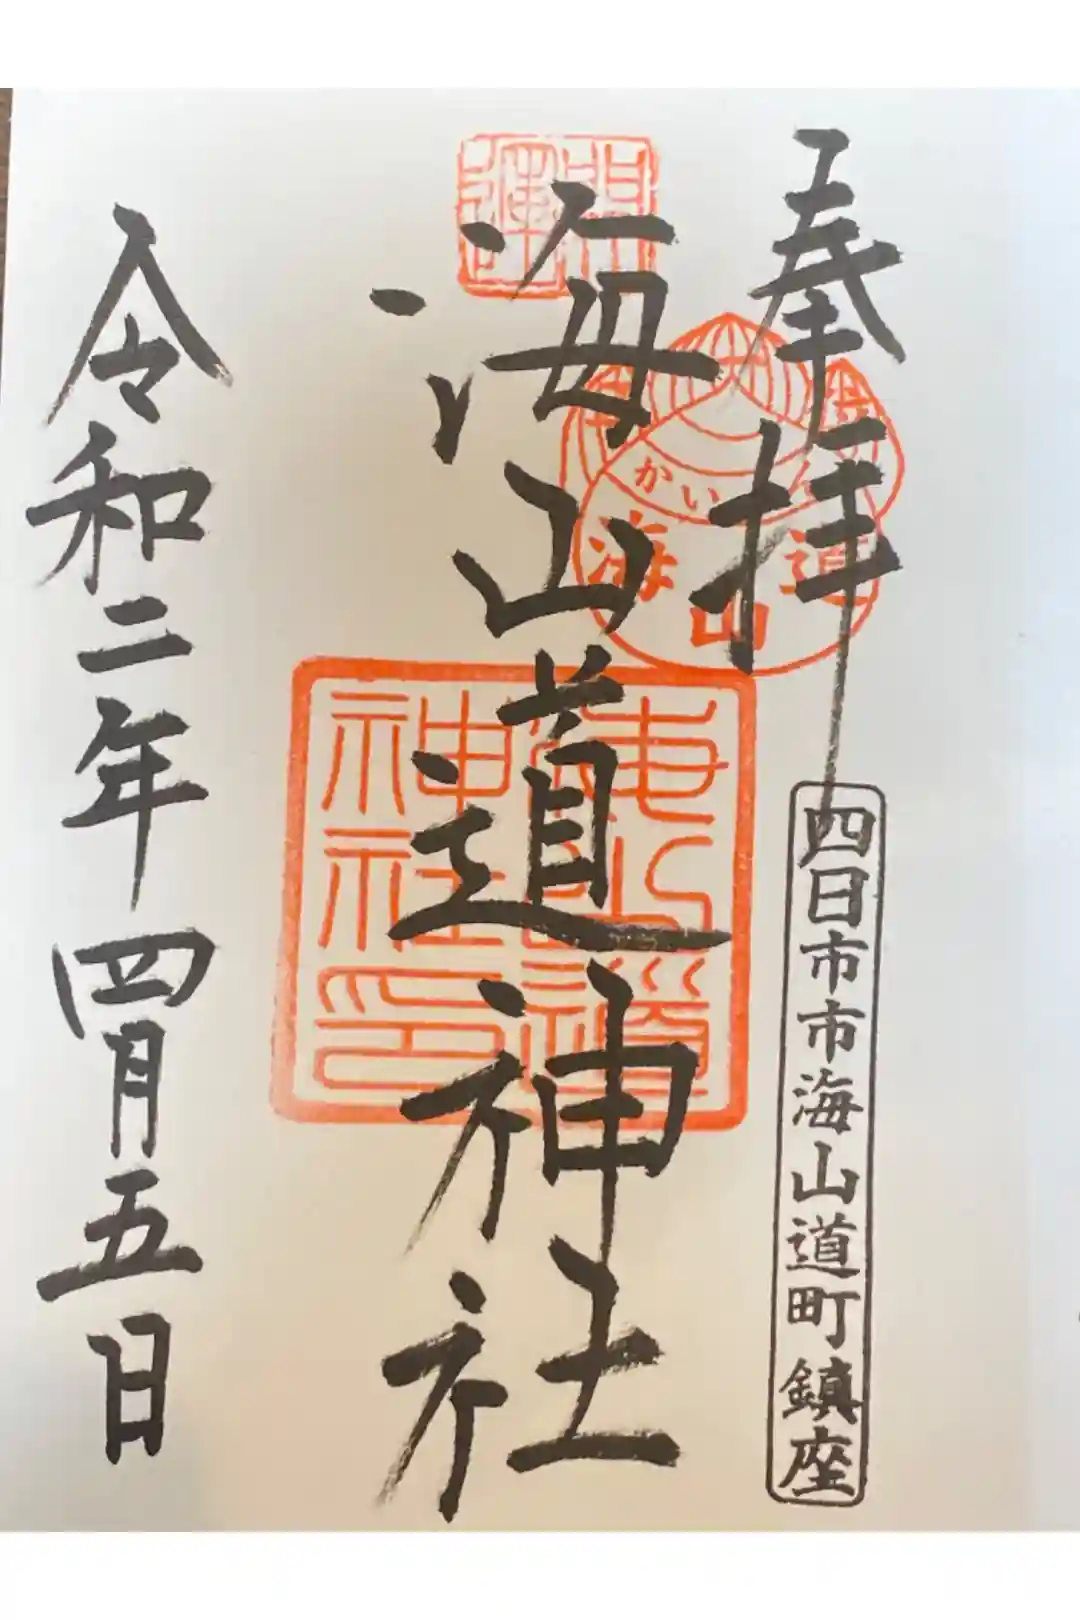 奉拝
四日市市海山道町鎮座
開運
海山道神社
かい
海山道
海山道神社印
令和二年四月五日